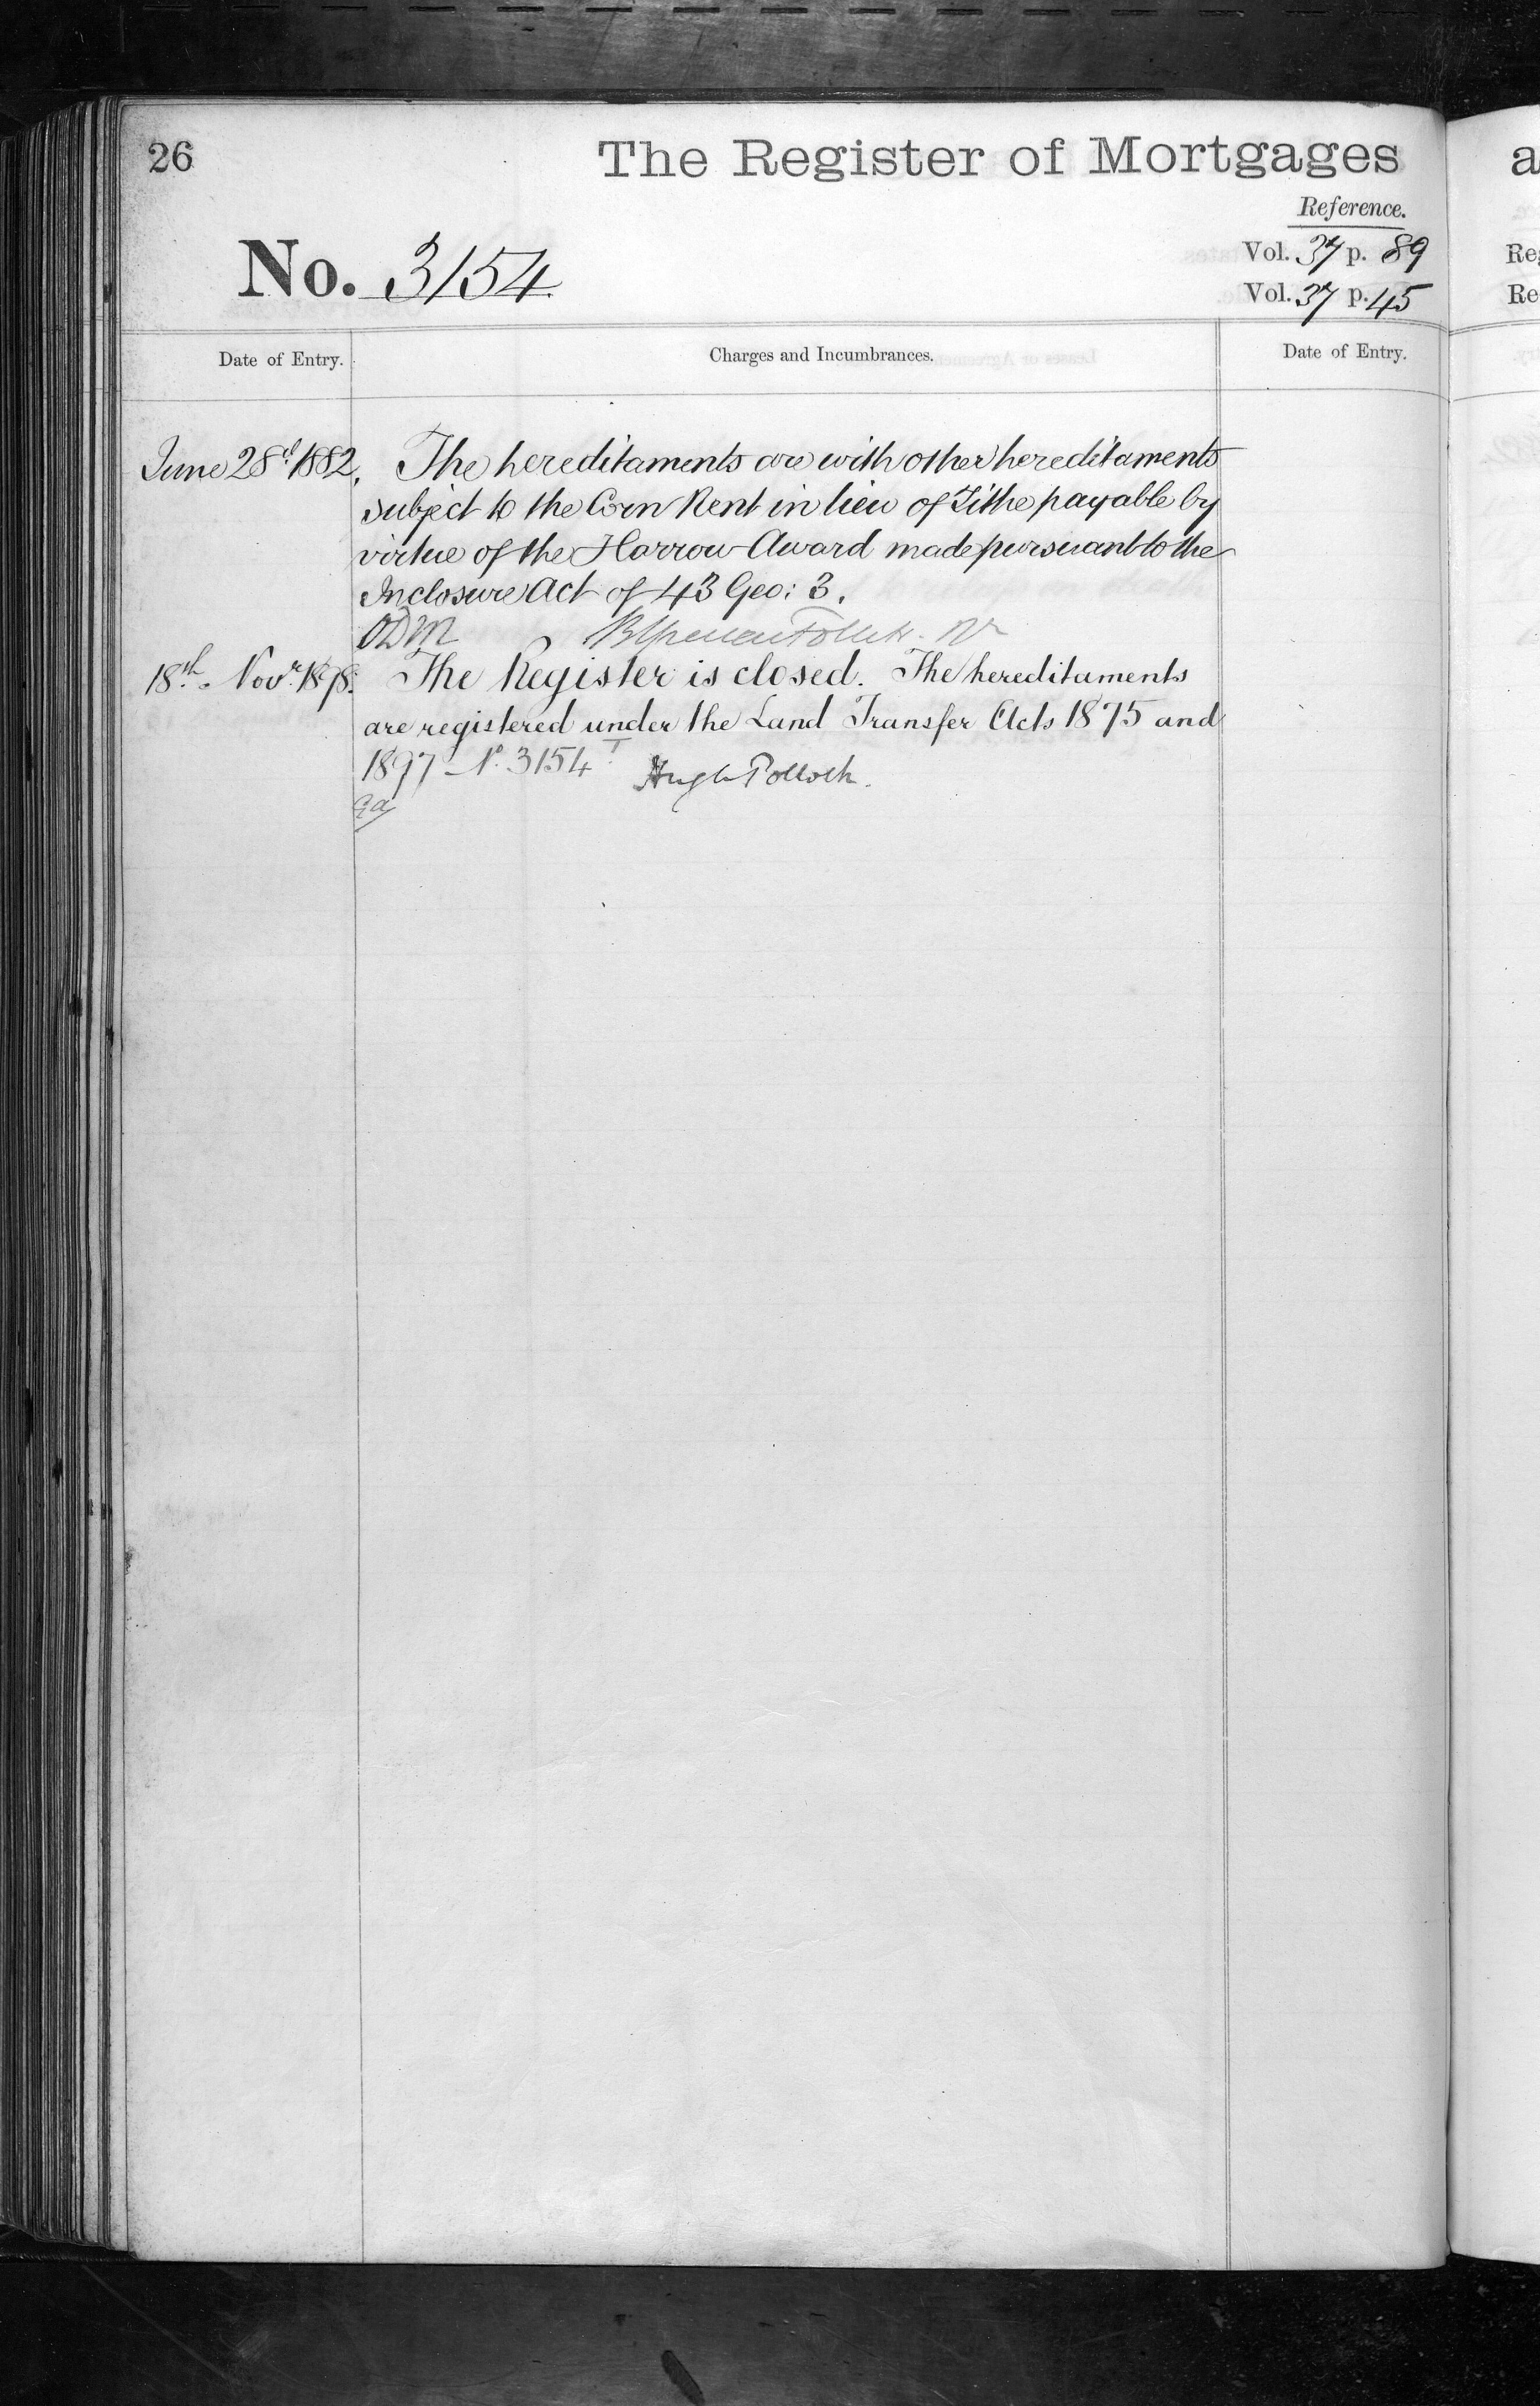 26
The Register of Mortgages
Reference.
No. 3154
Vol. 37 p. 89
Vol. 37 p. 45
Date of Entry.
Charges and Incumbrances.
Date of Entry.
June 28th 1882. The hereditaments are with other hereditaments
subject to the Corn Rent in lieu of Tithe payable by
virtue of the Harrow Award made pursuant to the
Inclosure Act of 43 Geo: 3.
ODM
18th Novr. 1898. The Register is closed. The hereditaments
are registered under the Land Transfer Acts 1875 and
1897 No. 3154T. Hugh Pollock.
a
Re